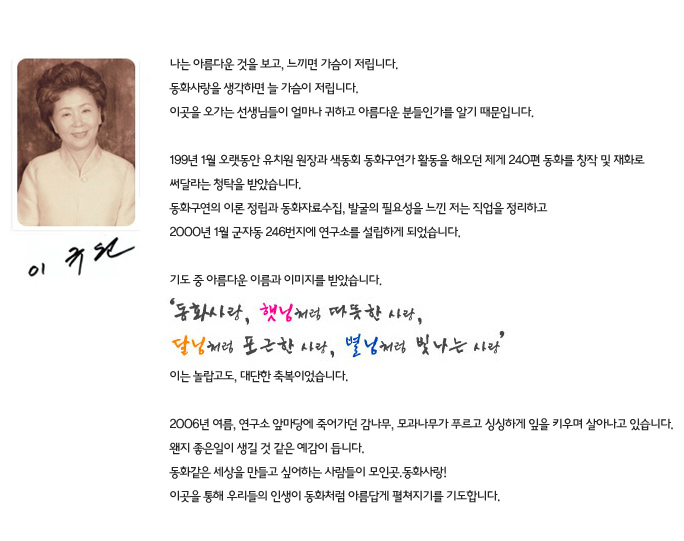 나는 아름다운 것을 보고, 느끼면 가슴이 저립니다.
동화사랑을 생각하면 늘 가슴이 저립니다.
이곳을 오가는 선생님들이 얼마나 귀하고 아름다운 분들인가를 알기 때문입니다.
199년 1월 오랫동안 유치원 원장과 색동회 동화구연가 활동을 해오던 제게 240편 동화를 창작 및 재화로
써달라는 청탁을 받았습니다.
동화구연의 이론 정립과 동화자료수집, 발굴의 필요성을 느낀 저는 직업을 정리하고
2000년 1월 군자동 246번지에 연구소를 설립하게 되었습니다.
이 규원
기도 중 아름다운 이름과 이미지를 받았습니다.
‘동화사랑, 햇님처럼 따뜻한 사랑,
달님처럼 포근한 사랑, 별님처럼 빛나는 사랑’
이는 놀랍고도, 대단한 축복이었습니다.
2006년 여름, 연구소 앞마당에 죽어가던 감나무, 모과나무가 푸르고 싱싱하게 잎을 키우며 살아나고 있습니다.
왠지 좋은일이 생길 것 같은 예감이 듭니다.
동화같은 세상을 만들고 싶어하는 사람들이 모인곳.동화사랑!
이곳을 통해 우리들의 인생이 동화처럼 아름답게 펼쳐지기를 기도합니다.